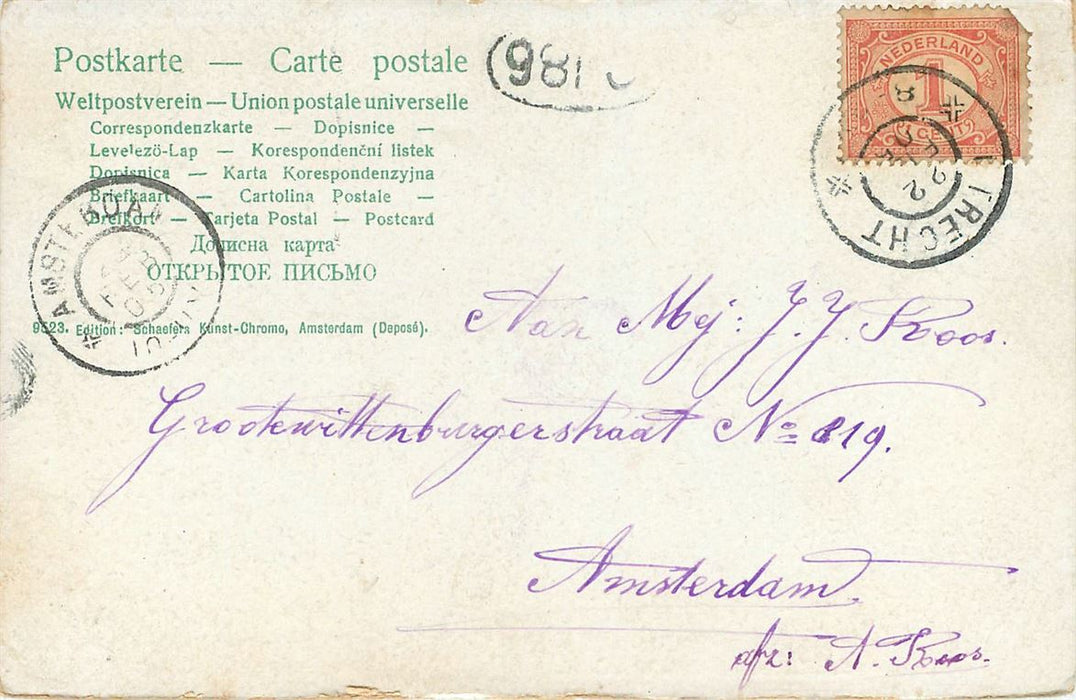 Postkarte — Carte postale
Weltpostverein — Union postale universelle
Correspondenzkarte — Dopisnice —
Levelezö-Lap — Korespondenční listek
Dopisnica — Karta Korespondenzyjna
Briefkaart — Cartolina Postale —
Brefkort — Tarjeta Postal — Postcard
Дописна карта
ОТКРЫТОЕ ПИСЬМО
9523. Edition: Schaefers Kunst-Chromo, Amsterdam (Deposé).
NEDERLAND
1
CENT
UTRECHT
AMSTERDAM
FEB
Aan Mej: J. J. Koos.
Grootewittenburgerstraat No 119.
Amsterdam.
afz: A. Koos.